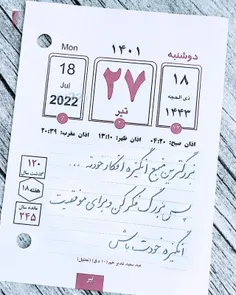 Mon
۱۴۰۱
دوشنبه
18
Jul
2022
۲۷
تیر
۱۸
ذی الحجه
۱۴۴۳
اذان صبح: ۰۴:۲۰ اذان ظهر: ۱۳:۱۰ اذان مغرب: ۲۰:۳۹
۱۲۰
گذشت سال
هفته ۱۸
مانده سال
۲۴۵
بزرگترین منبع انگیزه افکار خودته ...
پس بزرگ فکر کن و برای موفقیت
انگیزه خودت باش
عید سعید غدیر خم (۱۰ ه‍.ق) (تعطیل)
تیر